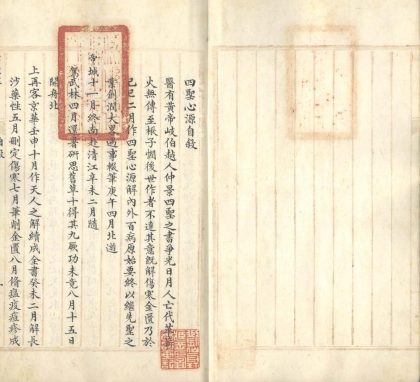 四聖心源自敘
醫有黃帝岐伯越人仲景四聖之書爭光日月人亡代革薪
火無傳玉楸子憫後世作者不達其意既解傷寒金匱乃於
己巳二月作四聖心源解內外百病原始要終以繼先聖之
業創潤大畧遇事輟筆庚午四月北遊
帝城十一月終南赴清江辛未二月隨
駕武林四月還署研思舊草十得其九厥功未竟八月十五日
開舟北
上再客京華壬申十月作天人之解續成全書癸未二月解長
沙藥性五月刪定傷寒七月筆削金匱八月脩瘟疫痘疹成